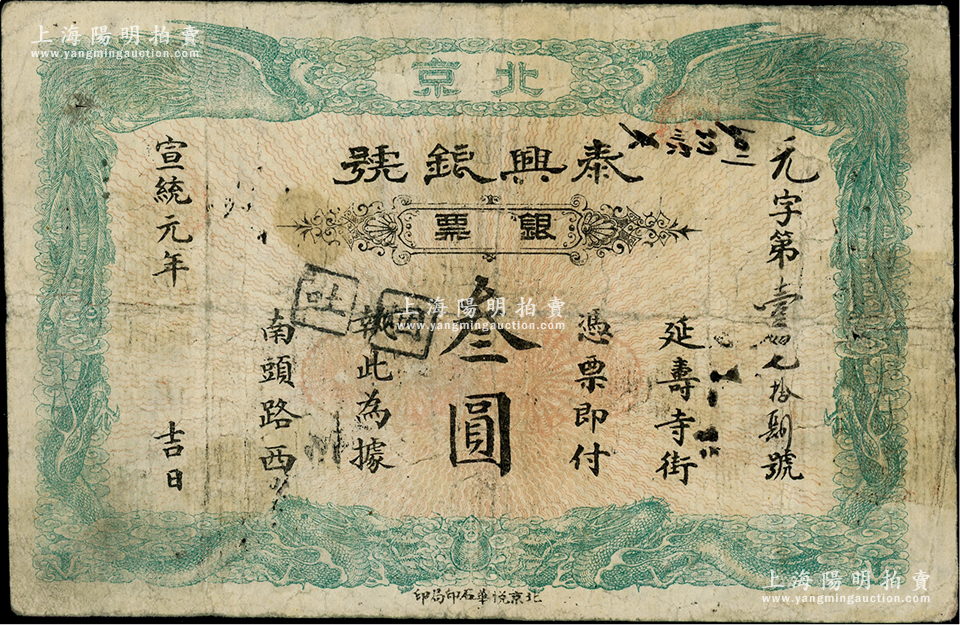 北京
泰興銀號
銀票
元字第壹 七拾 號
延壽寺街
憑票即付
叁圓
執此為據
南頭路西
宣統元年 吉日
北京悦華石印局印
上海陽明拍賣
www.yangmingauction.com
上海陽明拍賣
www.yangmingauction.com
上海陽明拍賣
www.yangmingauction.com